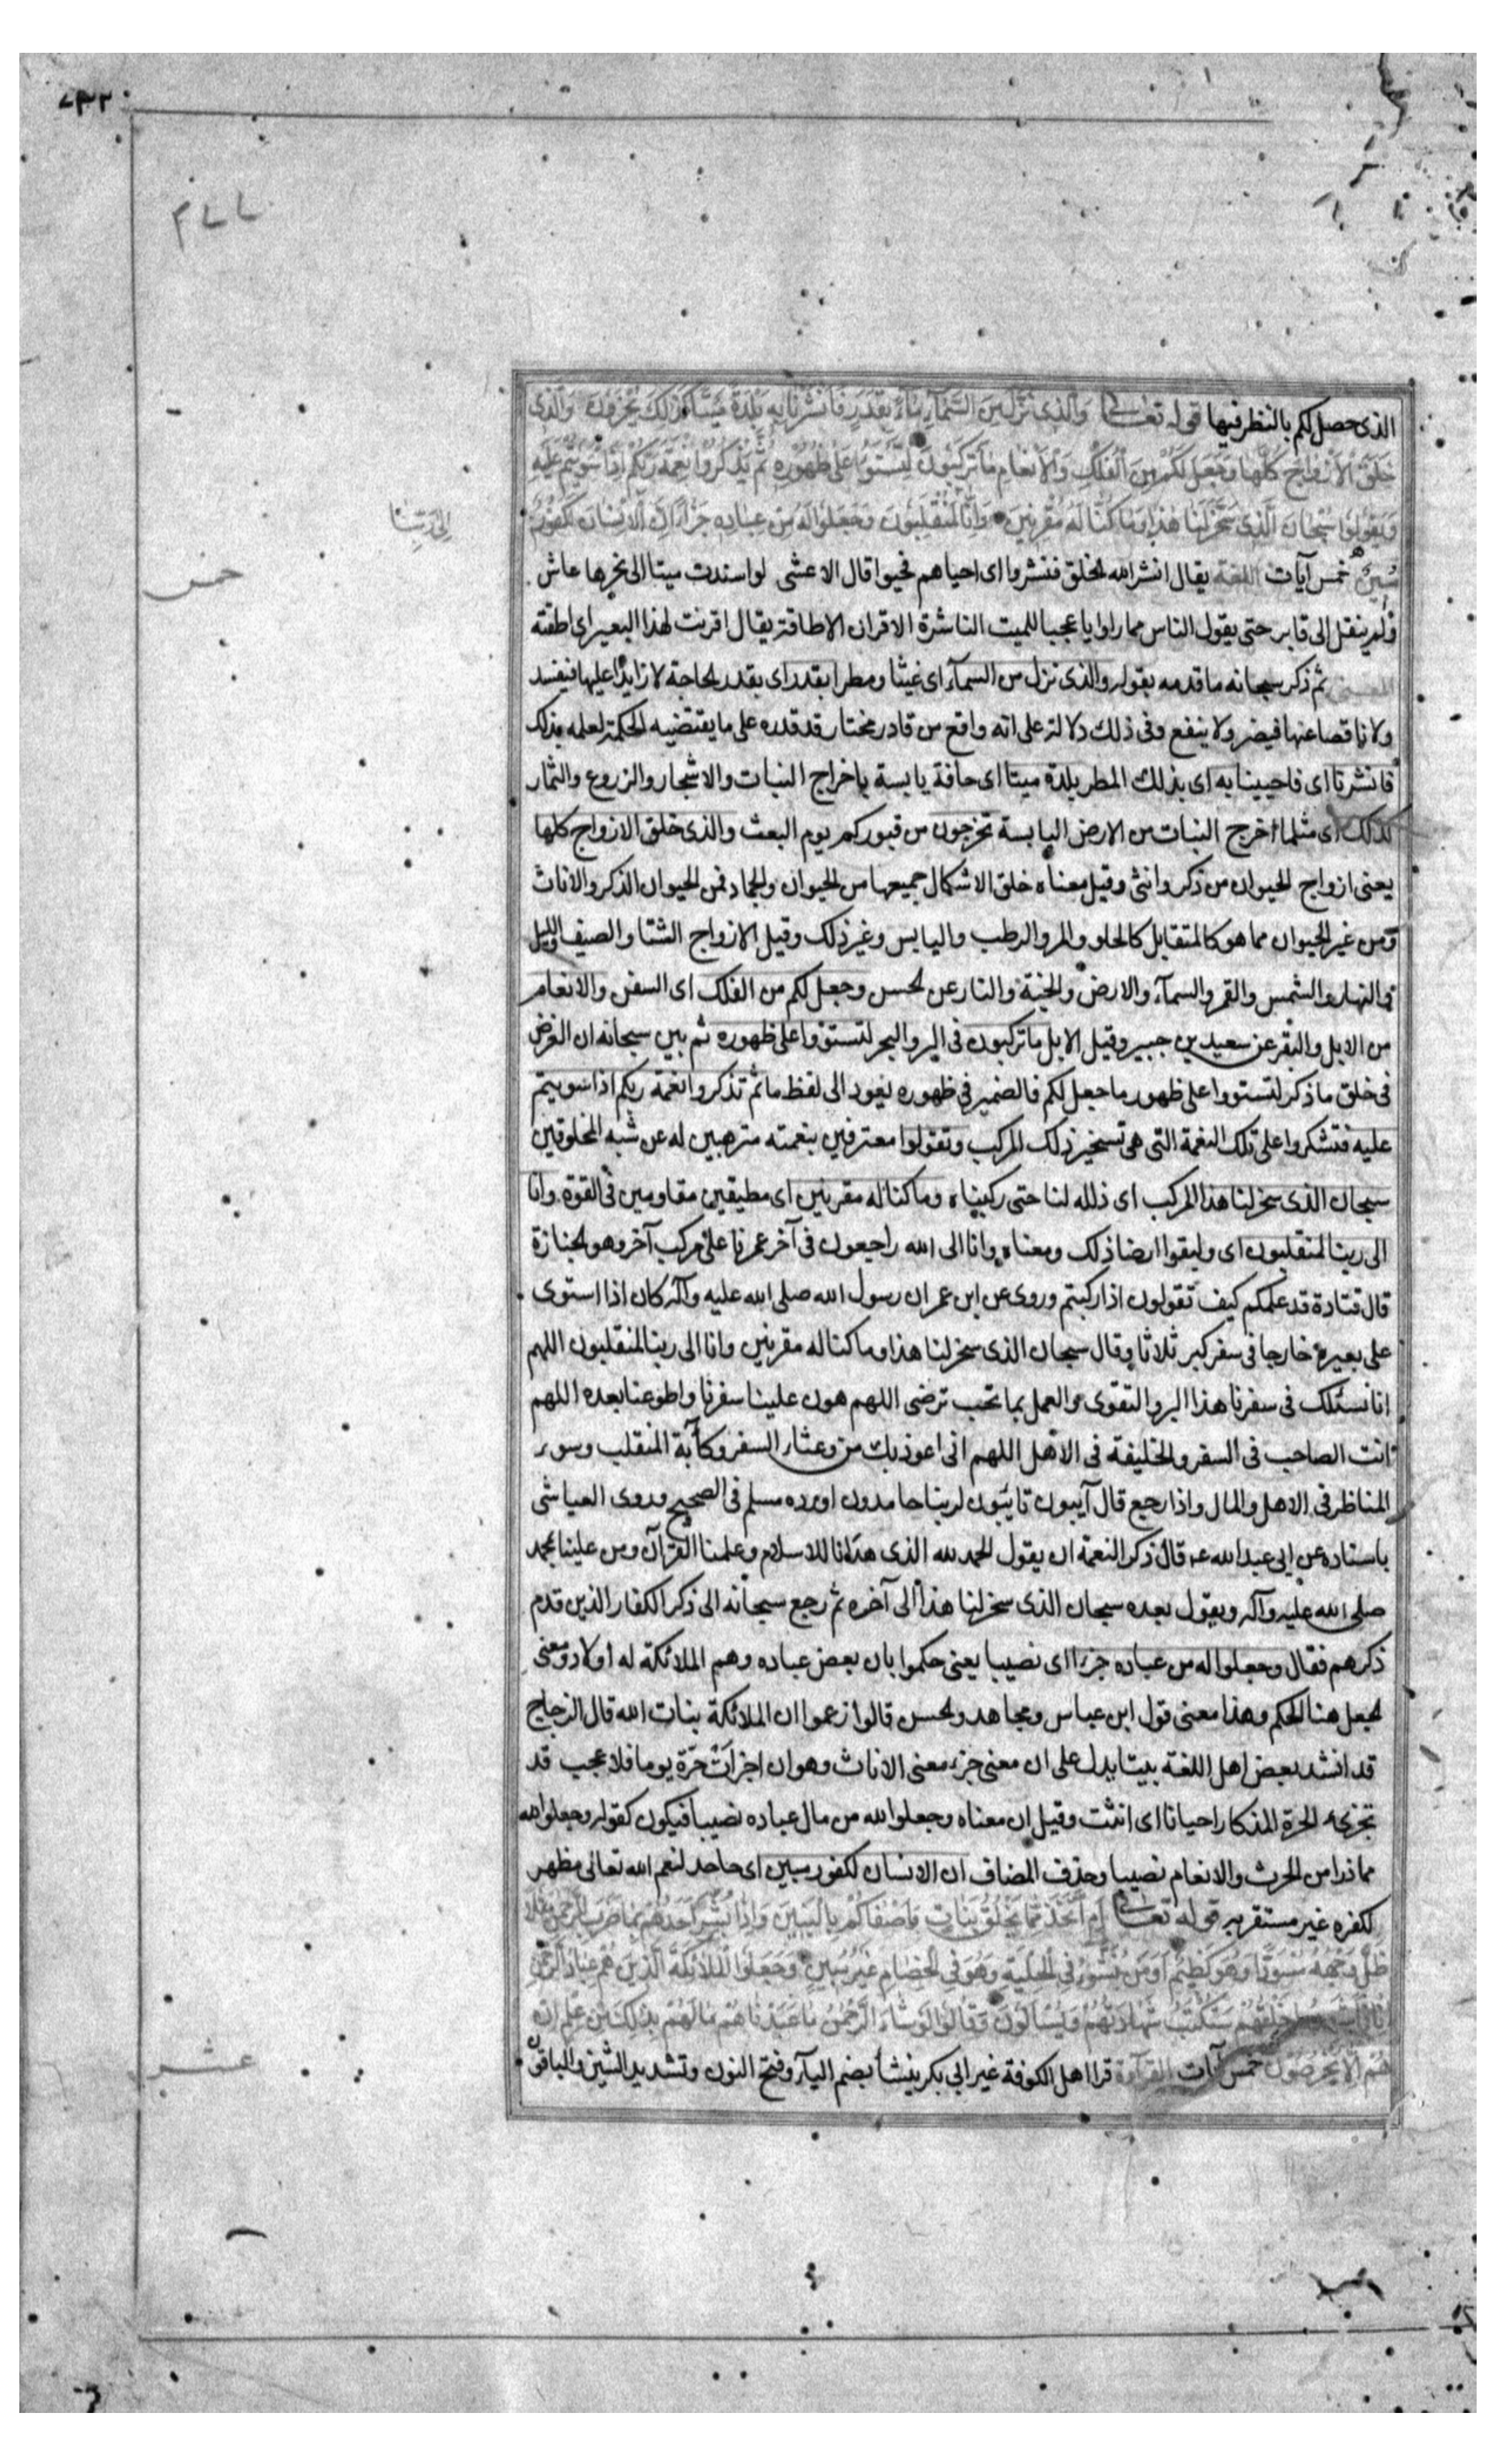 ٧٣٢
الذی حصل لکم بالنظر فیها قوله تعالی وَالَّذِی نَزَّلَ مِنَ السَّمَآءِ مَآءً بِقَدَرٍ فَانْشَرْنَا بِهِ بَلْدَةً مَیْتًا کَذٰلِکَ تُخْرَجُونَ وَالَّذِی
خَلَقَ الْاَزْوَاجَ کُلَّهَا وَجَعَلَ لَکُمْ مِنَ الْفُلْکِ وَالْاَنْعَامِ مَا تَرْکَبُونَ لِتَسْتَوُا عَلٰی ظُهُورِهِ ثُمَّ تَذْکُرُوا نِعْمَةَ رَبِّکُمْ اِذَا اسْتَوَیْتُمْ عَلَیْهِ
وَتَقُولُوا سُبْحَانَ الَّذِی سَخَّرَ لَنَا هٰذَا وَمَا کُنَّا لَهُ مُقْرِنِینَ وَاِنَّا لَمُنْقَلِبُونَ وَجَعَلُوا لَهُ مِنْ عِبَادِهِ جُزْءًا اِنَّ الْاِنْسَانَ لَکَفُورٌ
اِلٰی رَبِّنَا
مُبِینٌ خمس آیات اللغة یقال انشر الله الخلق فنشروا ای احیاهم فحیوا قال الاعشی لو اسندت میتا الی نحرها عاش
خمس
ولم ینقل الی قابر حتی یقول الناس مما راوا یا عجبا للمیت الناشرة الاقران الاطاقة یقال اقرنت لهذا البعیر ای اطقته
المعنی ثم ذکر سبحانه ما قدمه بقوله والذی نزل من السمآء ای غیثا ومطرا بقدر ای بقدر الحاجة لا زایدا علیها فیفسد
ولا ناقصا عنها فیضر ولا ینفع وفی ذلک دلالة علی انه واقع من قادر مختار قد قدره علی ما یقتضیه الحکمة لعلمه بذلک
فانشرنا ای فاحیینا به ای بذلک المطر بلدة میتا ای جافة یابسة باخراج النبات والاشجار والزروع والثمار
کذلک ای مثلما اخرج النبات من الارض الیابسة تخرجون من قبورکم یوم البعث والذی خلق الازواج کلها
یعنی ازواج الحیوان من ذکر وانثی وقیل معناه خلق الاشکال جمیعها من الحیوان والجماد فمن الحیوان الذکر والاناث
ومن غیر الحیوان مما هو کالمتقابل کالحلو والمر والرطب والیابس وغیر ذلک وقیل الازواج الشتا والصیف واللیل
والنهار والشمس والقمر والسمآء والارض والجنة والنار عن الحسن وجعل لکم من الفلک ای السفن والانعام
من الابل والبقر عن سعید بن جبیر وقیل الابل ما ترکبون فی البر والبحر لتستووا علی ظهوره ثم بین سبحانه ان الغرض
فی خلق ما ذکر لتستووا علی ظهور ما جعل لکم فالضمیر فی ظهوره یعود الی لفظ ما ثم تذکروا نعمة ربکم اذا استویتم
علیه فتشکروا علی تلک النعمة التی هی تسخیر ذلک المرکب وتقولوا معترفین بنعمته منزهین له عن شبه المخلوقین
سبحان الذی سخر لنا هذا المرکب ای ذلله لنا حتی رکبناه وما کنا له مقرنین ای مطیقین مقاومین فی القوة وانا
الی ربنا لمنقلبون ای ولیقولوا ایضا ذلک ومعناه وانا الی الله راجعون فی آخر عمرنا علی مرکب آخر وهو الجنازة
قال قتادة قد علمکم کیف تقولون اذا رکبتم وروی عن ابن عمر ان رسول الله صلی الله علیه وآله کان اذا استوی
علی بعیره خارجا فی سفر کبر ثلاثا وقال سبحان الذی سخر لنا هذا وما کنا له مقرنین وانا الی ربنا لمنقلبون اللهم
انا نسئلک فی سفرنا هذا البر والتقوی والعمل بما تحب ترضی اللهم هون علینا سفرنا واطو عنا بعده اللهم
انت الصاحب فی السفر والخلیفة فی الاهل اللهم انی اعوذ بک من وعثاء السفر وکآبة المنقلب وسوء
المناظر فی الاهل والمال واذا رجع قال آیبون تائبون لربنا حامدون اورده مسلم فی الصحیح وروی العیاشی
باسناده عن ابی عبد الله عـ قال ذکر النعمة ان یقول الحمد لله الذی هدانا للاسلام وعلمنا القرآن ومن علینا بمحمد
صلی الله علیه وآله ویقول بعده سبحان الذی سخر لنا هذا الی آخره ثم رجع سبحانه الی ذکر الکفار الذین قدم
ذکرهم فقال وجعلوا له من عباده جزءا ای نصیبا یعنی حکموا بان بعض عباده وهم الملائکة له اولاد ومعنی
الجعل هنا الحکم وهذا معنی قول ابن عباس ومجاهد والحسن قالوا زعموا ان الملائکة بنات الله قال الزجاج
قد انشد بعض اهل اللغة بیتا یدل علی ان معنی جزء معنی الاناث وهو ان اجزأت حرّة یوما فلا عجب قد
تجزیء الحرة المذکار احیانا ای انثت وقیل ان معناه وجعلوا لله من مال عباده نصیبا فیکون کقوله وجعلوا لله
مما ذرا من الحرث والانعام نصیبا وحذف المضاف ان الانسان لکفور مبین ای جاحد لنعم الله تعالی مظهر
لکفره غیر مستقر به قوله تعالی اَمِ اتَّخَذَ مِمَّا یَخْلُقُ بَنَاتٍ وَاَصْفَاکُمْ بِالْبَنِینَ وَاِذَا بُشِّرَ اَحَدُهُمْ بِمَا ضَرَبَ لِلرَّحْمٰنِ مَثَلًا
ظَلَّ وَجْهُهُ مُسْوَدًّا وَهُوَ کَظِیمٌ اَوَمَنْ یُنَشَّؤُ فِی الْحِلْیَةِ وَهُوَ فِی الْخِصَامِ غَیْرُ مُبِینٍ وَجَعَلُوا الْمَلَائِکَةَ الَّذِینَ هُمْ عِبَادُ الرَّحْمٰنِ
اِنَاثًا خَلْقَهُمْ سَتُکْتَبُ شَهَادَتُهُمْ وَیُسْاَلُونَ وَقَالُوا لَوْ شَآءَ الرَّحْمٰنُ مَا عَبَدْنَاهُمْ مَا لَهُمْ بِذٰلِکَ مِنْ عِلْمٍ اِنْ
هُمْ اِلَّا یَخْرُصُونَ خمس آیات القرآءة قرا اهل الکوفة غیر ابی بکر ینشأ بضم الیآء وفتح النون وتشدید الشین والباقون
عشر